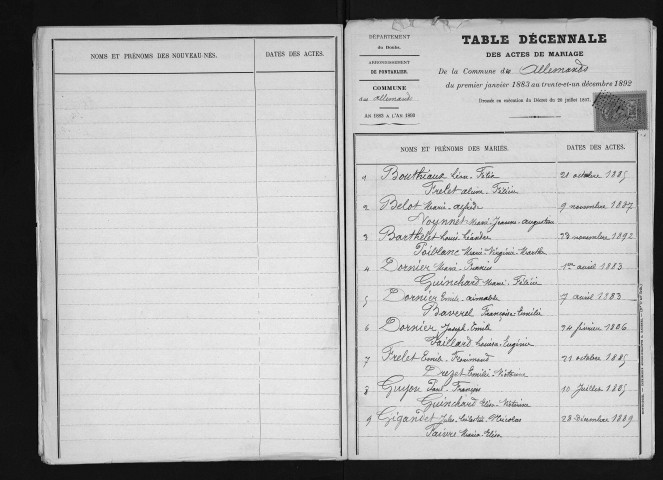 NOMS ET PRÉNOMS DES NOUVEAU-NÉS. DATES DES ACTES.
DÉPARTEMENT
du Doubs.
ARRONDISSEMENT
DE PONTARLIER.
COMMUNE
des Allemands
AN 1883 A L'AN 1893
TABLE DÉCENNALE
DES ACTES DE MARIAGE
De la Commune des Allemands
du premier janvier 1883 au trente-et-un décembre 1892
Dressée en exécution du Décret du 20 juillet 1807.
NOMS ET PRÉNOMS DES MARIÉS. DATES DES ACTES.
1 Bouthiaux Léon-Félix 21 octobre 1885
Frelet Félicie
2 Belot Marie-Alfred 9 novembre 1887
Voynnet Marie-Jeanne-Augustine
3 Barthelet Louis-Léandre 23 novembre 1892
Poiblanc Marie-Virginie-Marthe
4 Dornier Marie-Francis 1er avril 1883
Guinchard Marie-Félicie
5 Dornier Emile-Aimable 7 avril 1883
Baverel Françoise-Emélie
6 Dornier Joseph-Emile 24 février 1886
Paillard Louisa-Eugénie
7 Frelet Emile 21 octobre 1885
Drezet Emélie-Victorine
8 Guyon Paul-François 10 juillet 1885
Guinchard Elise-Victorine
9 Gigandet Jules-Célestin-Nicolas 28 décembre 1889
Faivre Marie-Elisa